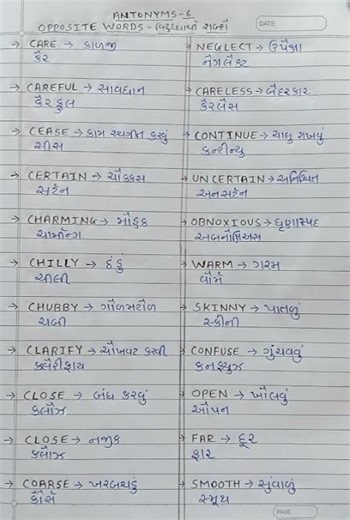 ANTONYMS-6
OPPOSITE WORDS - વિરુદ્ધાર્થી શબ્દો
DATE
→ CARE → કાળજી → NEGLECT → ઉપેક્ષા
કેર નેગલેક્ટ
→ CAREFUL → સાવધાન → CARELESS → બેદરકાર
કેરફુલ કેરલેસ
→ CEASE → કામ સ્થગીત કરવું → CONTINUE → ચાલુ રાખવું
સીસ કન્ટીન્યુ
→ CERTAIN → ચોક્કસ → UNCERTAIN → અનિશ્ચિત
સર્ટેન અનસર્ટેન
→ CHARMING → મોહક → OBNOXIOUS → ઘૃણાસ્પદ
ચાર્મીન્ગ અબનોક્સિઅસ
→ CHILLY → ઠંડું → WARM → ગરમ
ચીલી વોર્મ
→ CHUBBY → ગોળમટોળ → SKINNY → પાતળું
ચબી સ્કીની
→ CLARIFY → ચોખવટ કરવી → CONFUSE → ગુંચવવું
ક્લેરીફાય કનફ્યુઝ
→ CLOSE → બંધ કરવું → OPEN → ખોલવું
ક્લોઝ ઓપન
→ CLOSE → નજીક → FAR → દૂર
ક્લોઝ ફાર
→ COARSE → ખરબચડું → SMOOTH → સુંવાળું
કોર્સ સ્મૂથ
PAGE